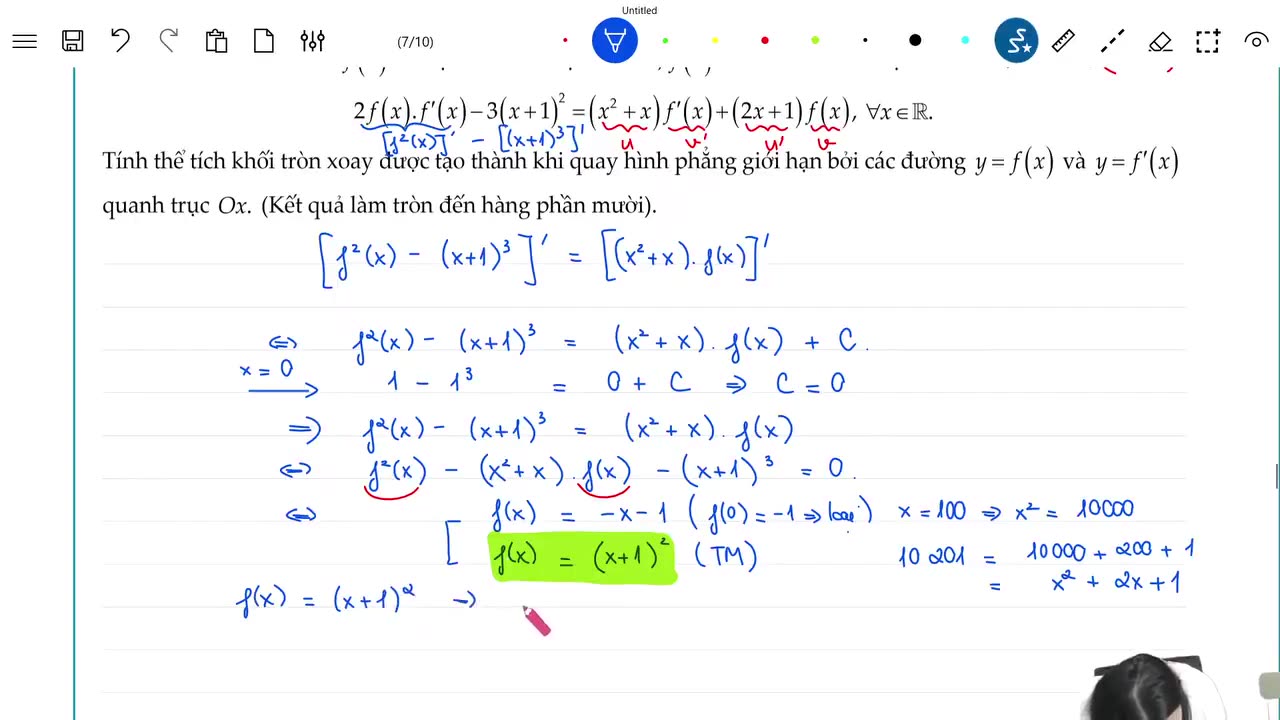 Untitled
(7/10)
2f(x).f'(x)−3(x+1)²=(x²+x)f'(x)+(2x+1)f(x), ∀x∈ℝ.
[f²(x)]' − [(x+1)³]' u v' u' v
Tính thể tích khối tròn xoay được tạo thành khi quay hình phẳng giới hạn bởi các đường y=f(x) và y=f'(x)
quanh trục Ox. (Kết quả làm tròn đến hàng phần mười).
[f²(x) − (x+1)³]' = [(x²+x).f(x)]'
⇔ f²(x) − (x+1)³ = (x²+x).f(x) + C.
x=0 → 1 − 1³ = 0 + C ⇒ C = 0
⇒ f²(x) − (x+1)³ = (x²+x).f(x)
⇔ f²(x) − (x²+x).f(x) − (x+1)³ = 0.
⇔ [ f(x) = −x−1 (f(0)=−1 ⇒ loại) x=100 ⇒ x² = 10000
f(x) = (x+1)² (TM) 10 201 = 10000 + 200 + 1
= x² + 2x+1
f(x) = (x+1)² →